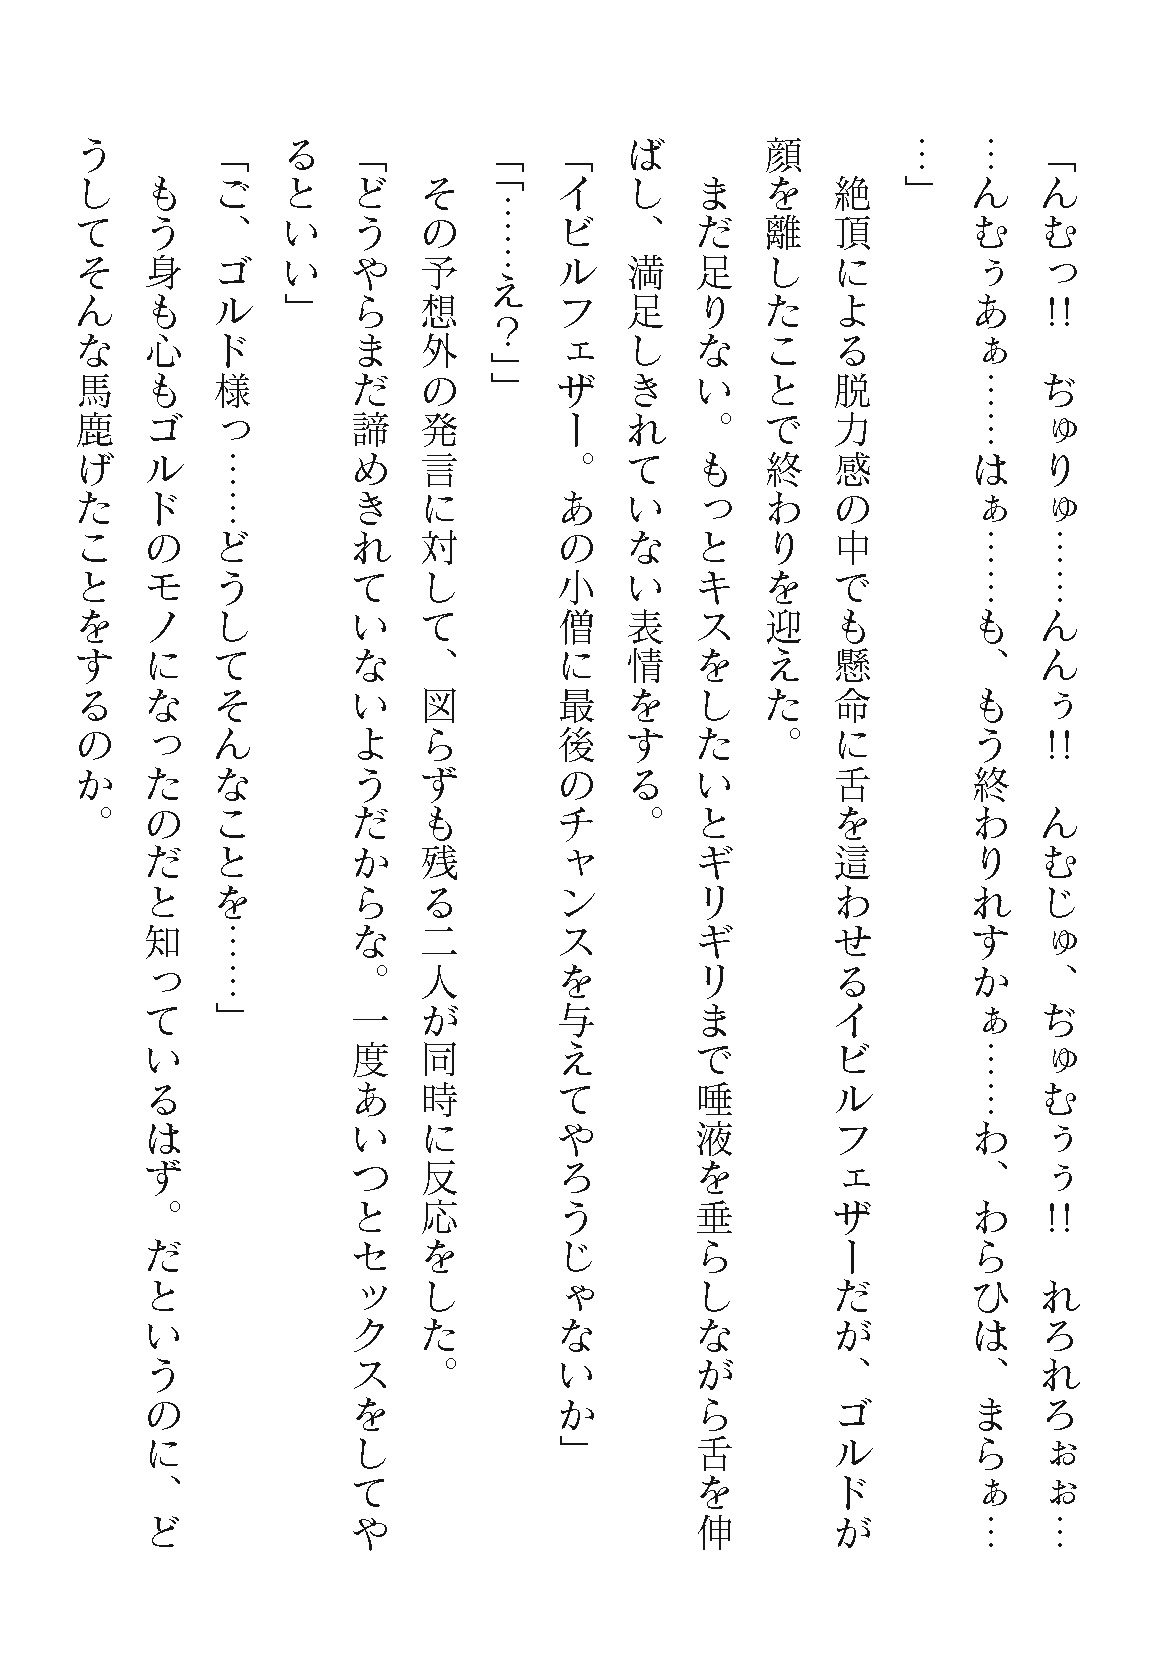 「んむっ!!　ぢゅりゅ……んんぅ!!　んむじゅ、ぢゅむぅぅ!!　れろれろぉぉ…
…んむぅあぁ……はぁ……も、もう終わりれすかぁ……わ、わらひは、まらぁ…
…」
　絶頂による脱力感の中でも懸命に舌を這わせるイビルフェザーだが、ゴルドが
顔を離したことで終わりを迎えた。
　まだ足りない。もっとキスをしたいとギリギリまで唾液を垂らしながら舌を伸
ばし、満足しきれていない表情をする。
「イビルフェザー。あの小僧に最後のチャンスを与えてやろうじゃないか」
「「……え？」」
　その予想外の発言に対して、図らずも残る二人が同時に反応をした。
「どうやらまだ諦めきれていないようだからな。一度あいつとセックスをしてや
るといい」
「ご、ゴルド様っ……どうしてそんなことを……」
　もう身も心もゴルドのモノになったのだと知っているはず。だというのに、ど
うしてそんな馬鹿げたことをするのか。